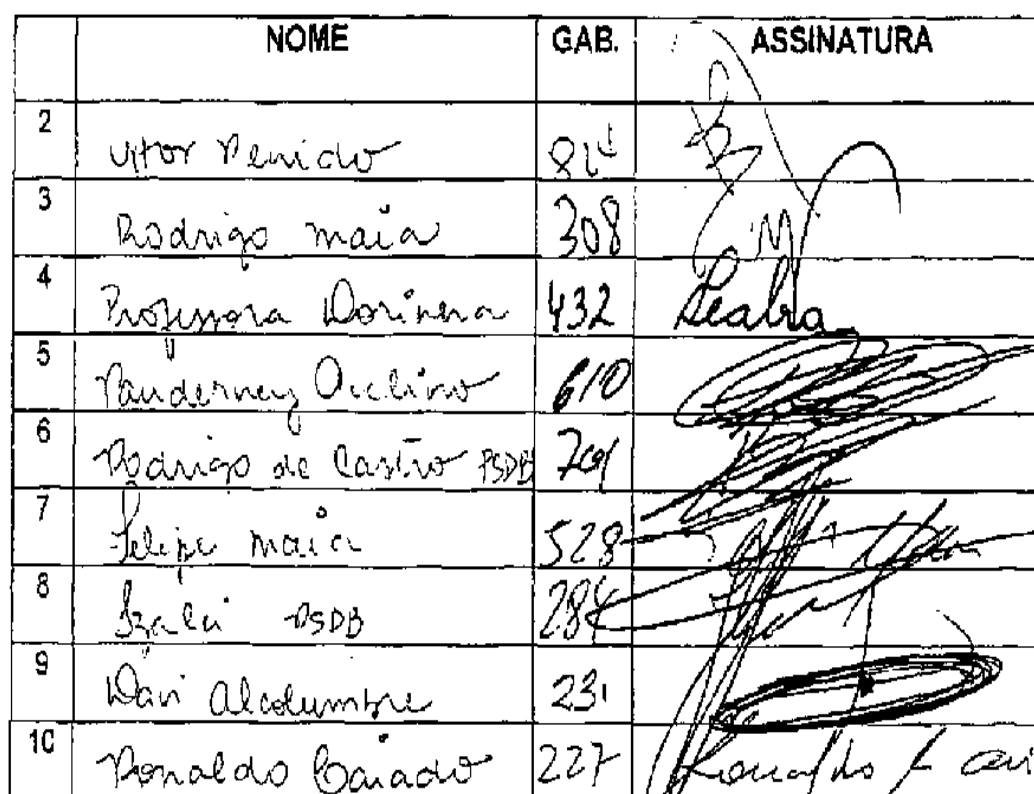 NOME GAB. ASSINATURA
2 Vitor Penido
3 Rodrigo maia 308
4 Professora Dorinha 432 Seabra
5 Pauderney Avelino 610
6 Rodrigo de Castro PSDB
7 Felipe maia 528
8 Izalci PSDB 284
9 Davi Alcolumbre 231
10 Ronaldo Caiado 227 Ronaldo